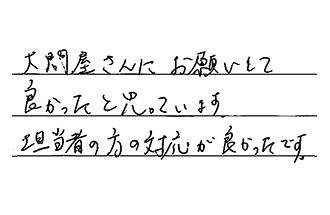 大問屋さんにお願いして
良かったと思っています
担当者の方の対応が良かったです。